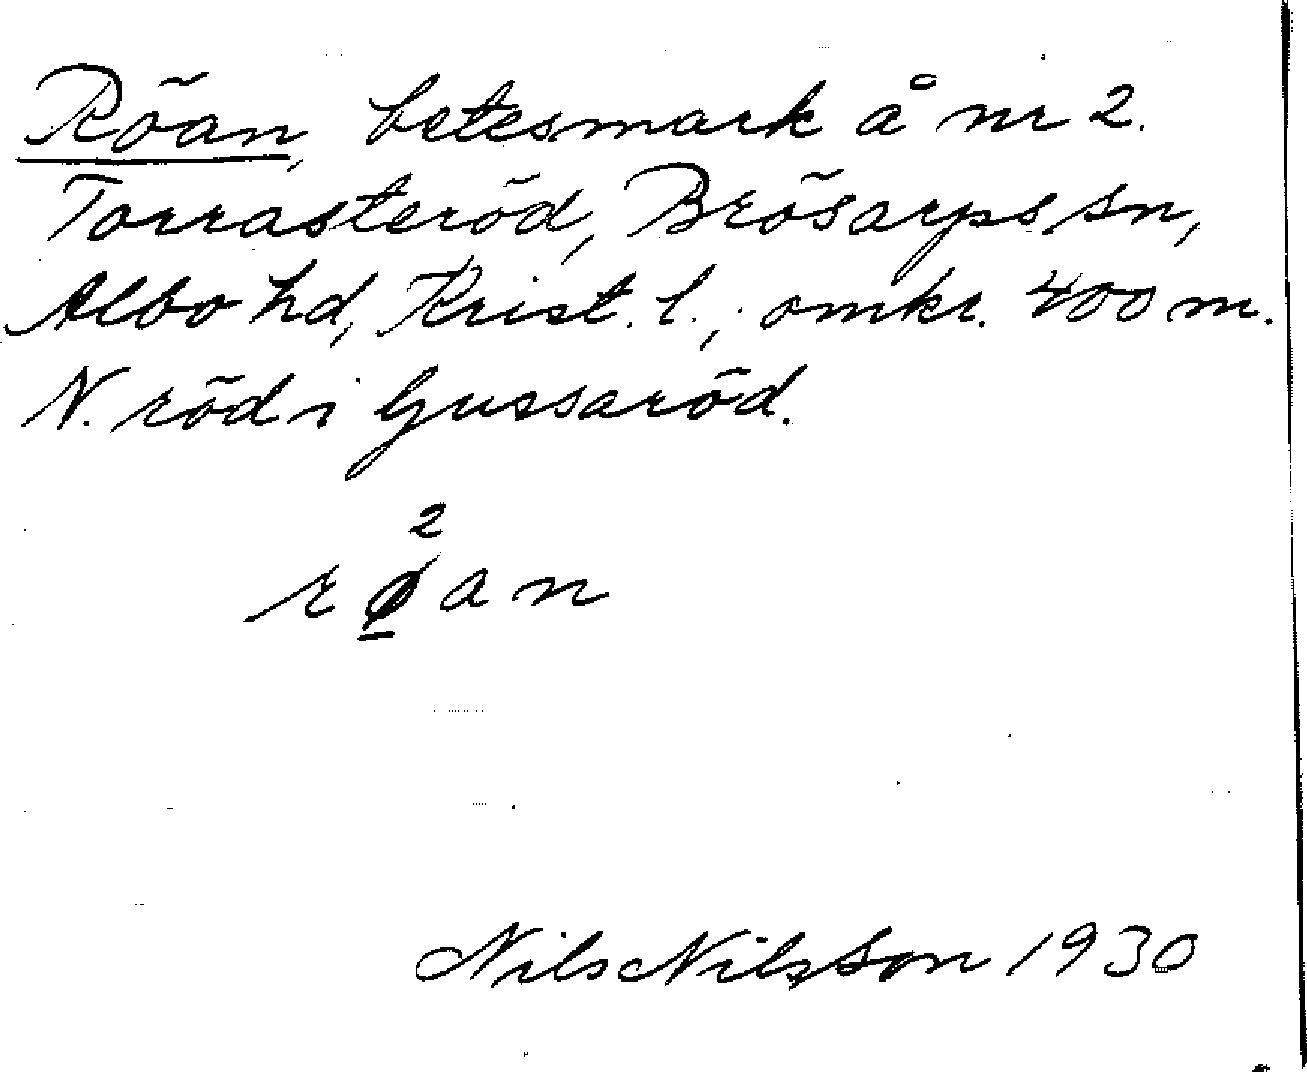 Röan, betesmark å nr 2.
Torrasteröd, Brösarps sn,
Albo hd, Krist. l., omkr. 400 m.
N. röd i Gussaröd.
2
rø̱an
Nils Nilsson 1930